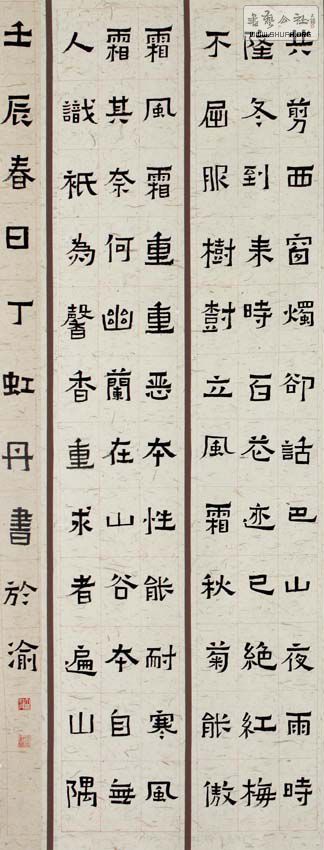 共剪西窗燭卻話巴山夜雨時
隆冬到来時百花迹已絕紅梅
不屈服樹樹立風霜秋菊能傲
霜風霜重重恶本性能耐寒風
霜其奈何幽蘭在山谷本自無
人識祇為馨香重求者遍山隅
壬辰春日丁虹丹書於渝
書藝公社
WWW.SHUFA.ORG